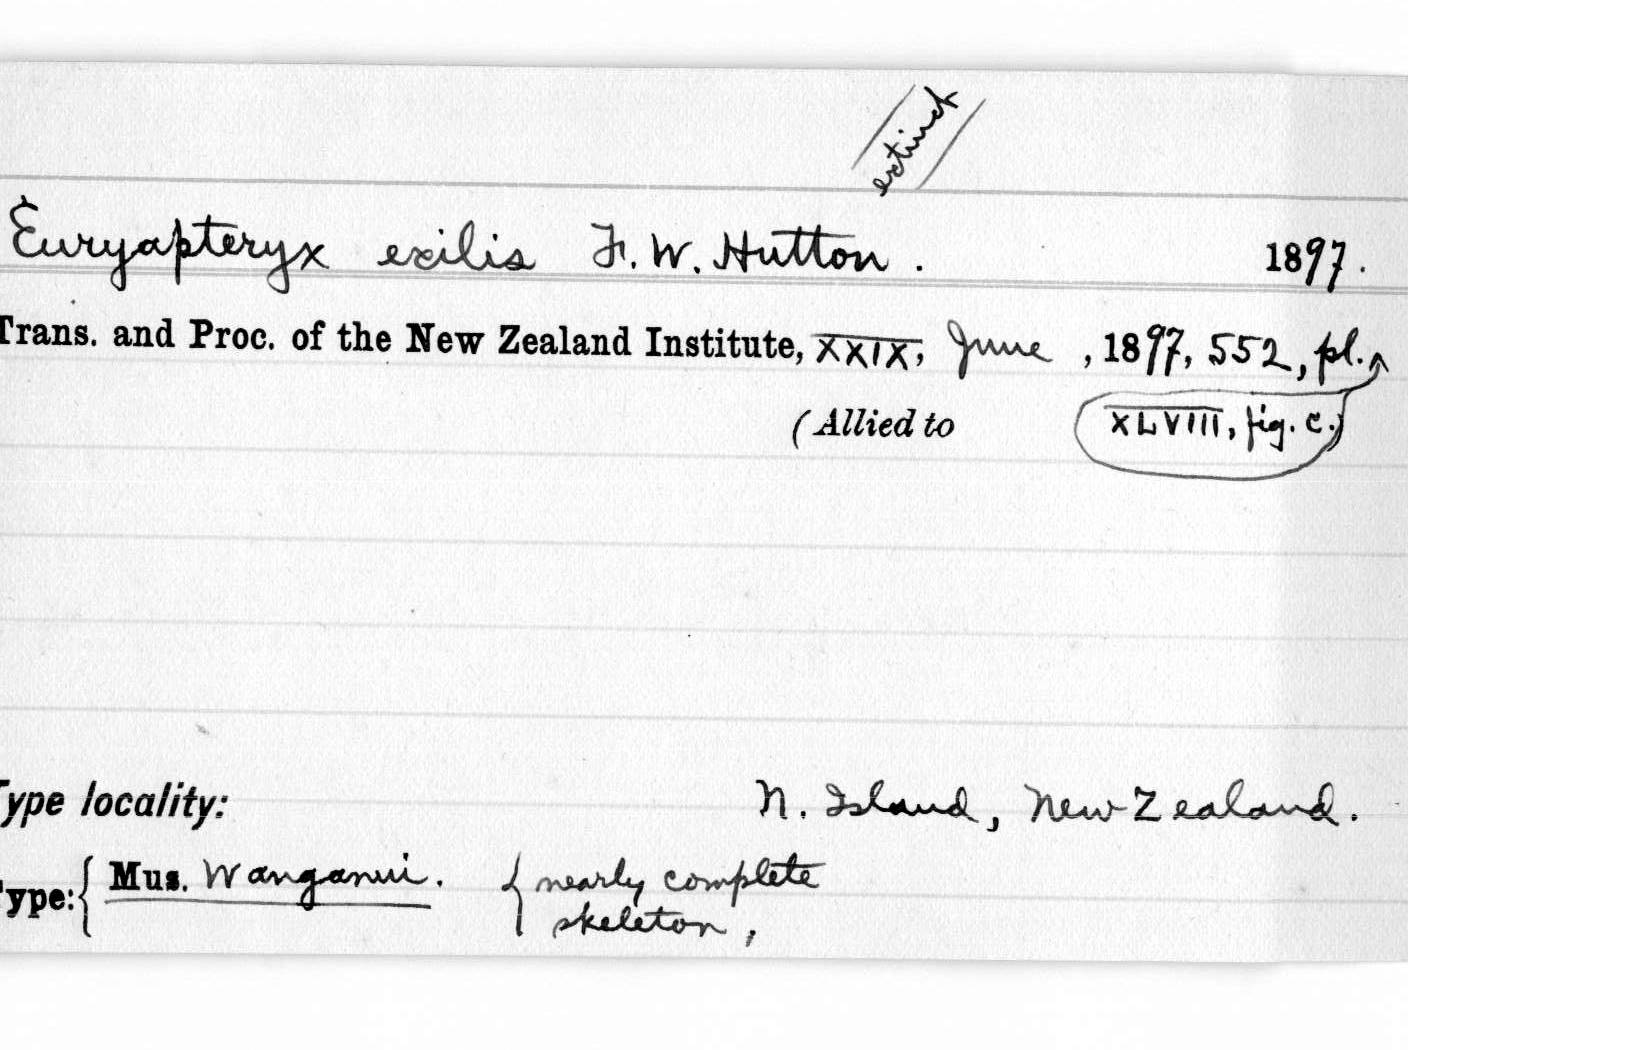 extinct
Euryapteryx exilis F. W. Hutton. 1897.
Trans. and Proc. of the New Zealand Institute, XXIX, June, 1897, 552, pl.
(Allied to XLVIII, fig. c.)
Type locality: N. Island, New Zealand.
Type: { Mus. Wanganui. { nearly complete
skeleton,